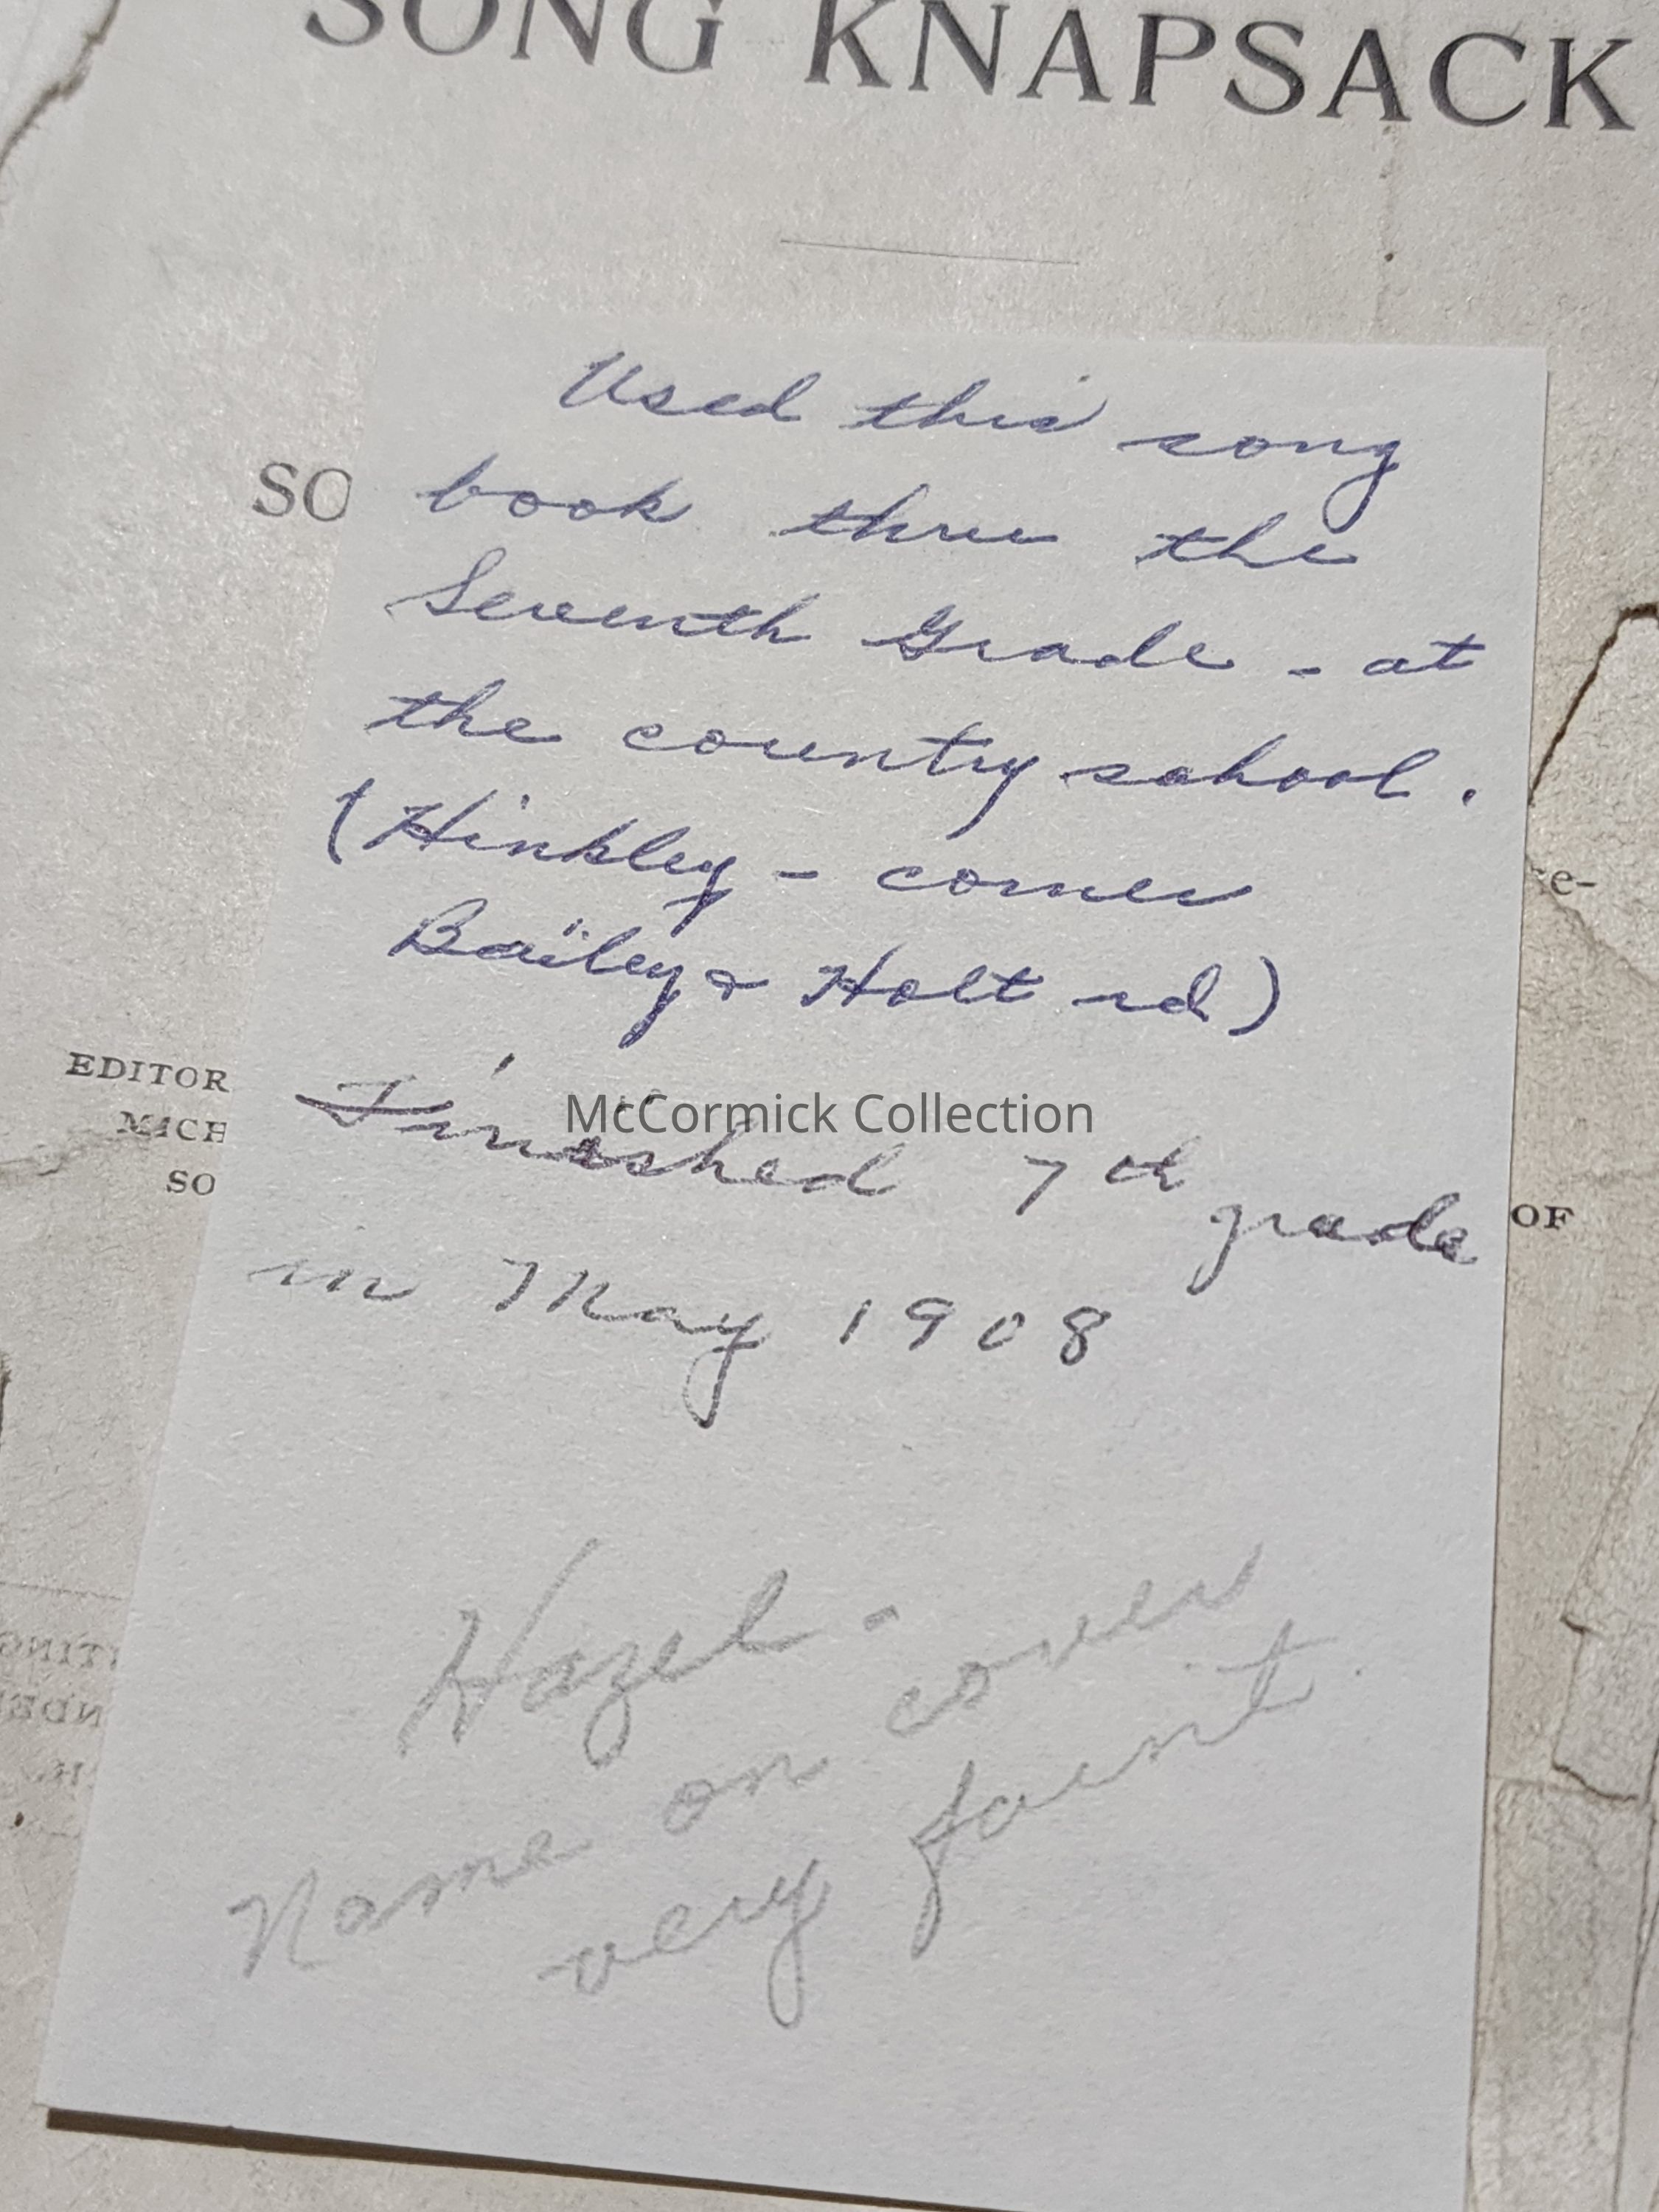 SONG KNAPSACK
Used this song
SO
book thru the
Seventh Grade - at
the country school.
(Hinkley - corner
Bailey & Holt rd)
EDITOR
MICH
SO
Finished 7th grade
McCormick Collection
OF
in May 1908
Hazel -
Name on cover
very faint